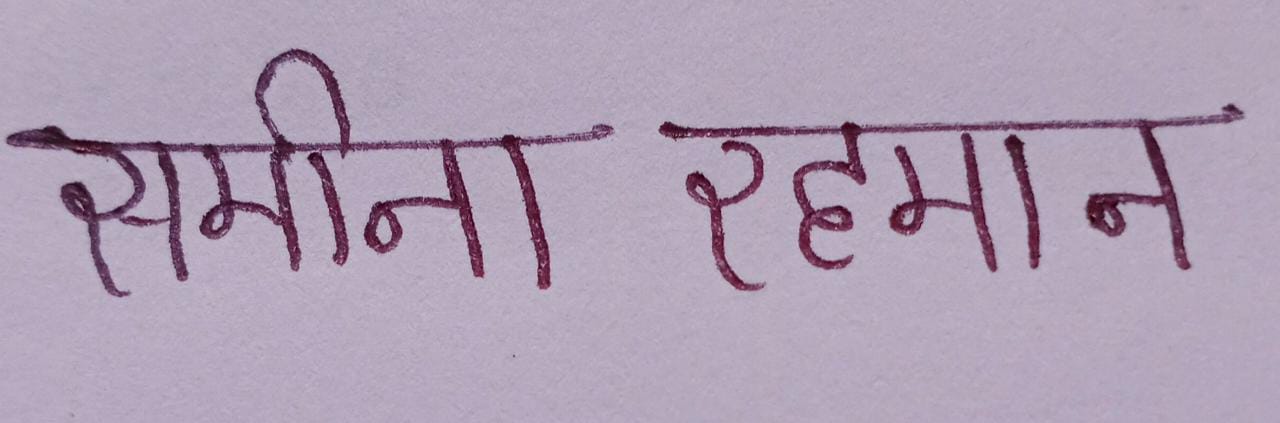 समीना रहमान